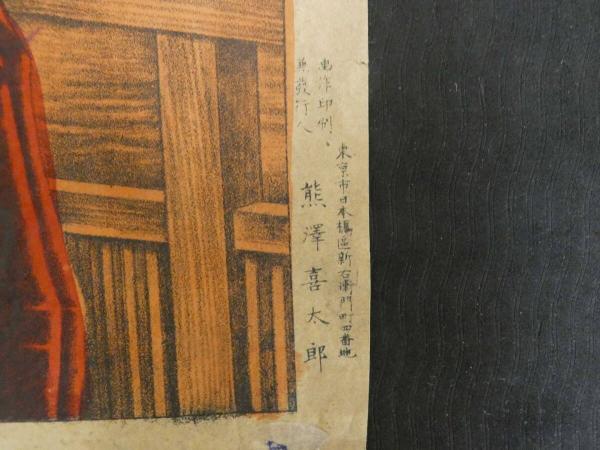 東京市日本橋區新右衛門町四番地
画作印刷、
兼發行人
熊澤喜太郎